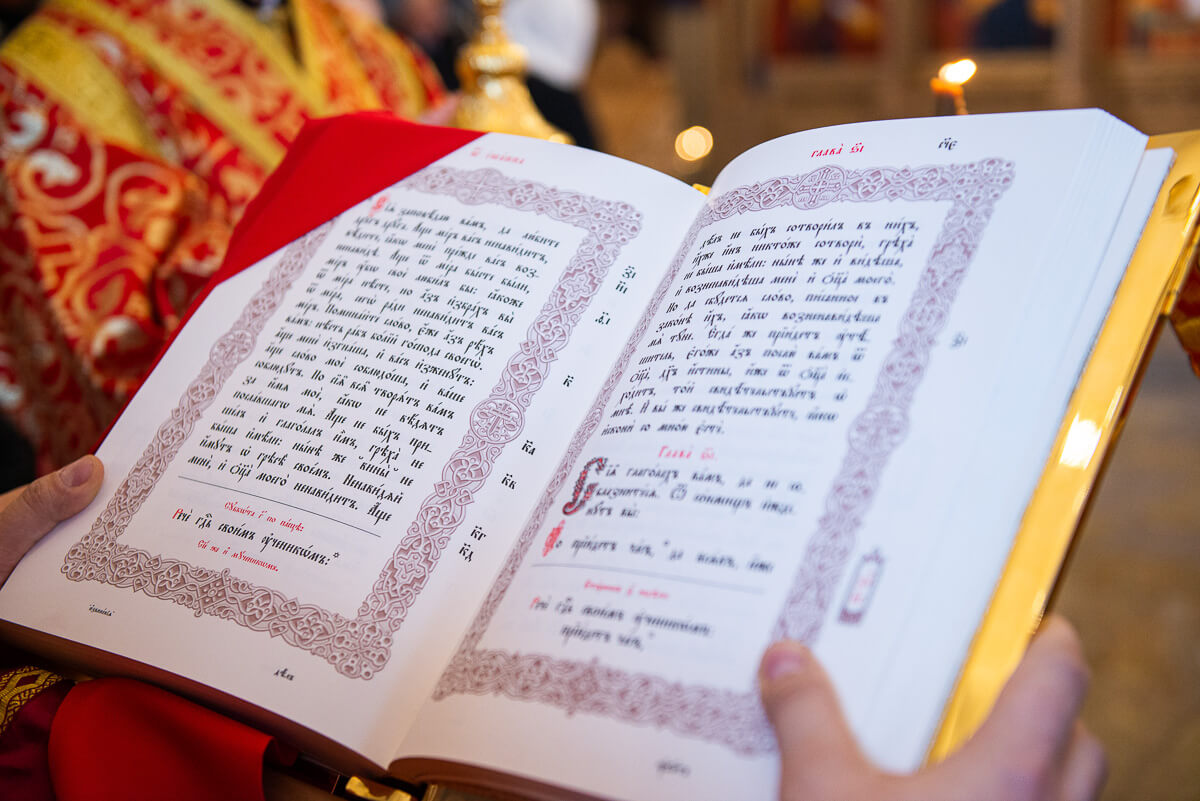 Ѿ їѡанна
Сїѧ заповѣдаю вамъ, да любите
дрꙋгъ дрꙋга. Аще мїръ васъ ненавидитъ,
вѣдите, ꙗкѡ мене прежде васъ воз-
ненавидѣ. Аще ѿ мїра бысте были,
мїръ ᲂубѡ своѐ любилъ бы: ꙗкоже
ѿ мїра нѣсте, но азъ избрахъ вы
ѿ мїра, сегѡ ради ненавидитъ васъ
мїръ. Поминайте слово, еже азъ рѣхъ
вамъ: нѣсть рабъ болїй господа своегѡ.
Аще мене изгнаша, и васъ изженꙋтъ:
аще слово мое соблюдоша, и ваше
соблюдꙋтъ. Но сїѧ всѧ творѧтъ вамъ
за имѧ мое, ꙗкѡ не вѣдѧтъ
пославшагѡ мѧ. Аще не быхъ при-
шелъ и глаголалъ имъ, грѣха не
быша имѣли: нынѣ же вины не
имꙋтъ ѡ грѣсѣ своемъ. Ненавидѧй
мене, и Ѻц҃а моегѡ ненавидитъ. Аще
по пасцѣ:
Речѐ гдⷭ҇ь своимъ ᲂученикѡмъ:
Сїй же и мꙋченикѡмъ.
зі
иі
ѳі
к
ка
кв
кг
кд
глава еі
дѣлъ не быхъ сотворилъ въ нихъ,
ихже инъ никтоже сотвори, грѣха
не быша имѣли: нынѣ же и видѣша,
и возненавидѣша мене и Ѻц҃а моегѡ.
Но да сбꙋдетсѧ слово, писанное въ
законѣ ихъ, ꙗкѡ возненавидѣша
мѧ тꙋне. Егда же прїидетъ ᲂутѣ-
шитель, егоже азъ послю вамъ ѿ
Ѻц҃а, дх҃ъ истины, иже ѿ Ѻц҃а ис-
ходитъ, той свидѣтельствꙋетъ ѡ
мнѣ. И вы же свидѣтельствꙋете, ꙗкѡ
искони со мною есте.
Глава ѕі.
Сїѧ глаголахъ вамъ, да не со-
блазнитесѧ. Ѿ сонмищъ ижде-
нꙋтъ вы:
но прїидетъ часъ, да всѧкъ, иже
Речѐ гдⷭ҇ь своимъ ᲂученикѡмъ:
прїидетъ часъ,